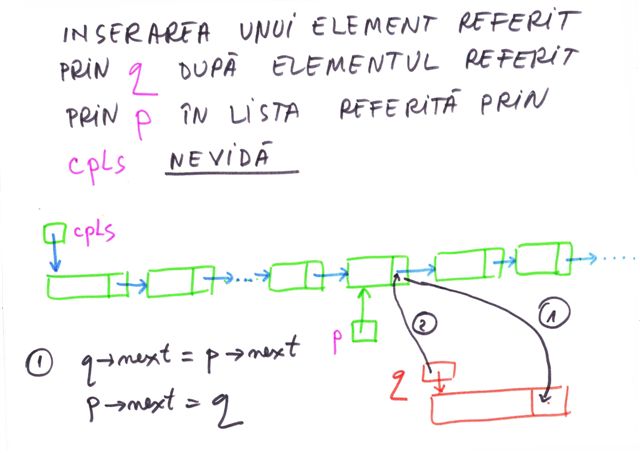 INSERAREA UNUI ELEMENT REFERIT
PRIN q DUPĂ ELEMENTUL REFERIT
PRIN p ÎN LISTA REFERITĂ PRIN
cpLs NEVIDĂ
cpLs
p
2
1
q
1 q→next = p→next
p→next = q